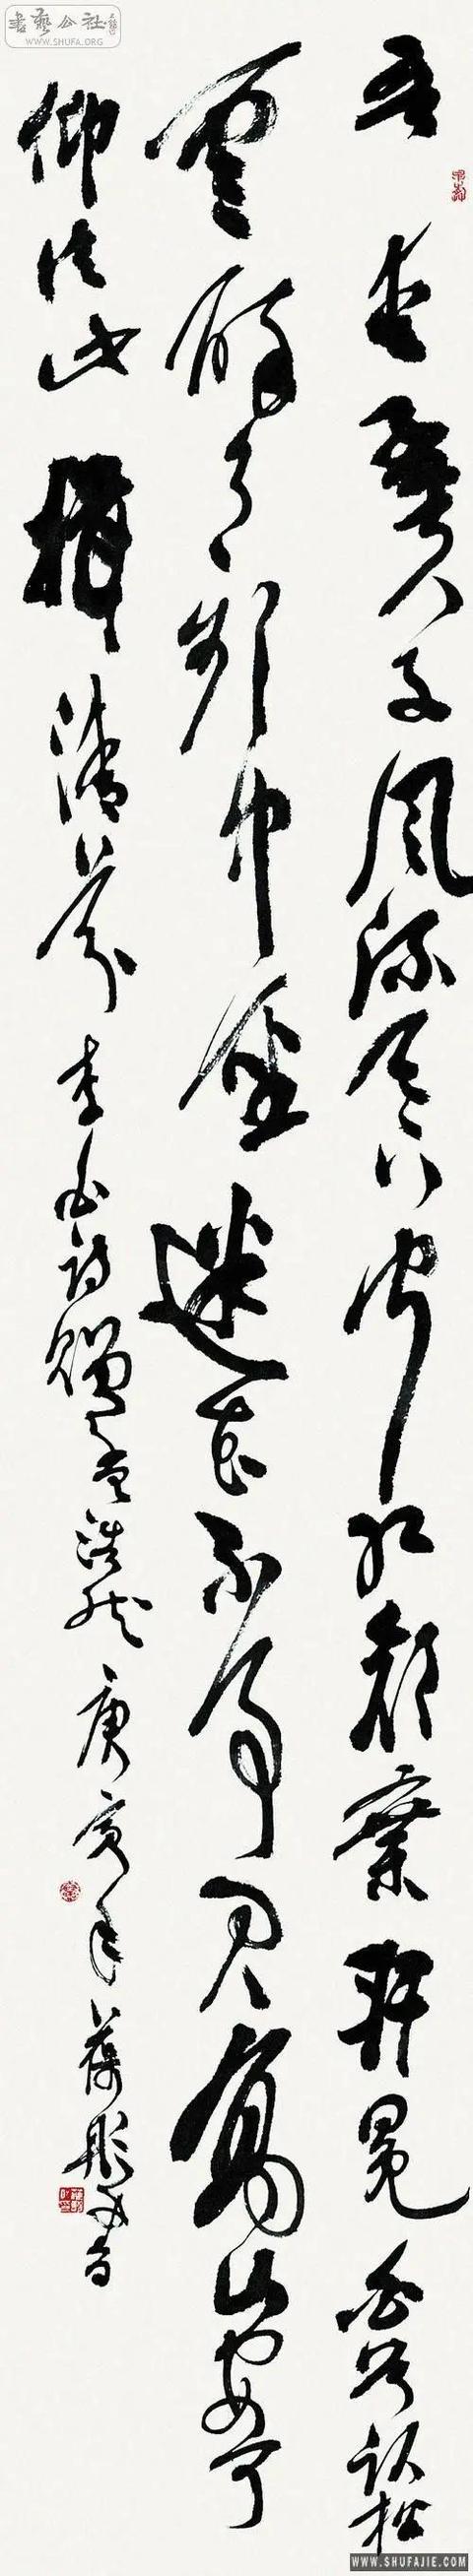 書藝公社
WWW.SHUFA.ORG
吾愛孟夫子風流天下聞紅顏棄軒冕白首臥松
雲醉月頻中聖迷花不事君高山安可
仰徒此揖清芬 李白詩贈孟浩然 庚寅年 書
WWW.SHUFAJIE.COM